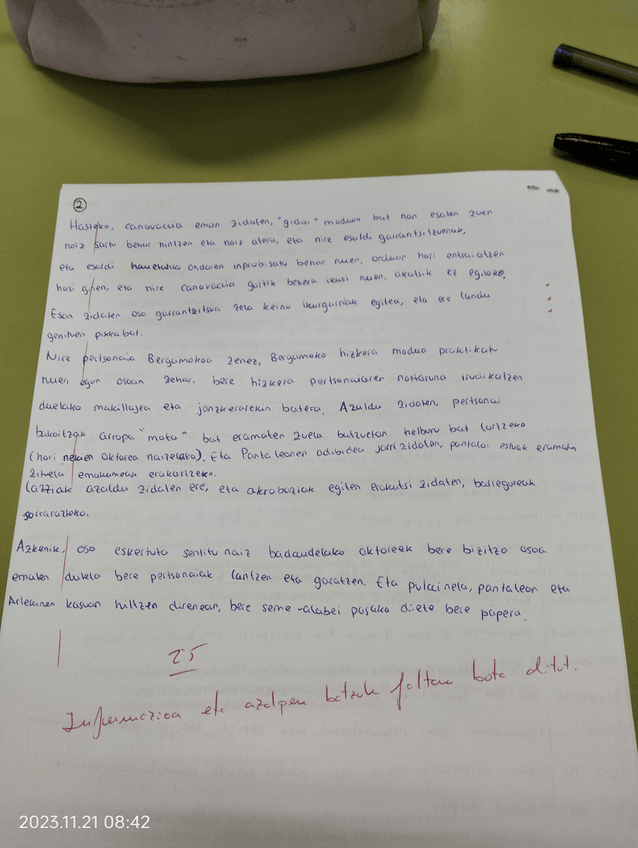 2
Hasteko, canovaccia eman zidaten, "gidoi" moduko bat non esaten zuen
noiz sartu behar nintzen eta noiz atera, eta nire esaldi garrantzitzuenak,
eta esaldi hauetatik ondoren inprobisatu behar nuen, orduan hori entsaiatzen
hasi ginen, eta nire canovaccia goitik behera ikasi nuen, akatsik ez egiteko.
Esan zidaten oso garrantzitsua zela keinu ikusgarriak egitea, eta ere landu
genituen pixka bat.
Nire pertsonaia Bergamokoa zenez, Bergamoko hizkera modua praktikatu
nuen egun osoan zehar, bere hizkera pertsonaiaren nortasuna irudikatzen
duelako makillajea eta janzkerarekin batera. Azaldu zidaten, pertsonai
bakoitzak arropa "mota" bat eramaten zuela batzuetan helburu bat lortzeko
(hori nekien aktorea naizelako). Eta Pantaleonen adibidea jarri zidaten, pantaloi estuak eramaten
zituela emakumeak erakartzeko.
Lazziak azaldu zidaten ere, eta akrobaziak egiten erakutsi zidaten, barregureak
sorrarazteko.
Azkenik, oso eskertuta sentitu naiz badaudelako aktoreek bere bizitza osoa
ematen dutela bere pertsonaiak lantzen eta garatzen. Eta pulcinela, pantaleon eta
Arlekinen kasuan hiltzen direnean, bere seme-alabei pasako diete bere papera.
25
Informazioa eta azalpen batzuk faltan bota ditut.
2023.11.21 08:42